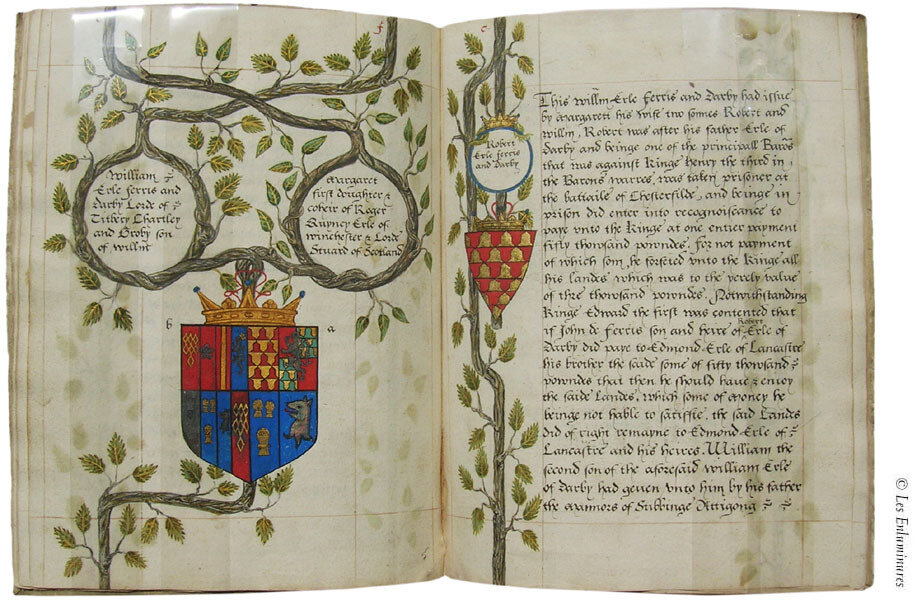 f
William
Erle ferris and
Darby Lorde of
Titbery Chartley
and Groby son
of willm
Margaret
first doughter &
coheir of Roger
Quyney Erle of
winchester & Lorde
Stuard of Scotland
b
a
c
Robert
Erle ferris
and Darby
This willm Erle Ferris and Darby had issue
by Margarett his wife two sonnes Robert and
willm, Robert was after his father Erle of
Darby and beinge one of the principall Barons
that was against Kinge henry the third in
the Barons warres, was taken prisoner at
the battaile of Chesterfilde, and beinge in
prison did enter into recognoiscance to
paye vnto the Kinge at one entier payment
fifty thowsand powndes. for not payment
of which som, he forfeted vnto the Kinge all
his landes which was to the yerely value
of thre thowsand powndes. Notwithstanding
Kinge Edward the first was contented that
if John de Ferris son and heire of Robert Erle of
Darby did paye to Edmond Erle of Lancastre
his brother the saide some of fifty thowsand
powndes that then he should have & enioy
the saide Landes, which some of money he
beinge not hable to satisfie, the said Landes
did of right remayne to Edmond Erle of
Lancastre and his heires. William the
second son of the aforesaid william Erle
of Darby had geven vnto him by his father
the mannors of Stebbinge
© Les Enluminures